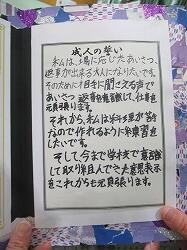 成人の誓い
私は、場に応じたあいさつ
返事が出来る大人になりたいです。
そのために相手に聞こえる声で
あいさつ 返事を意識して、仕事を
元気に頑張ります。
それから、私は
なので作れるように練習
したいです。
そして、今まで学校で意識
して取り組んできた意思表示
をこれからも頑張ります。